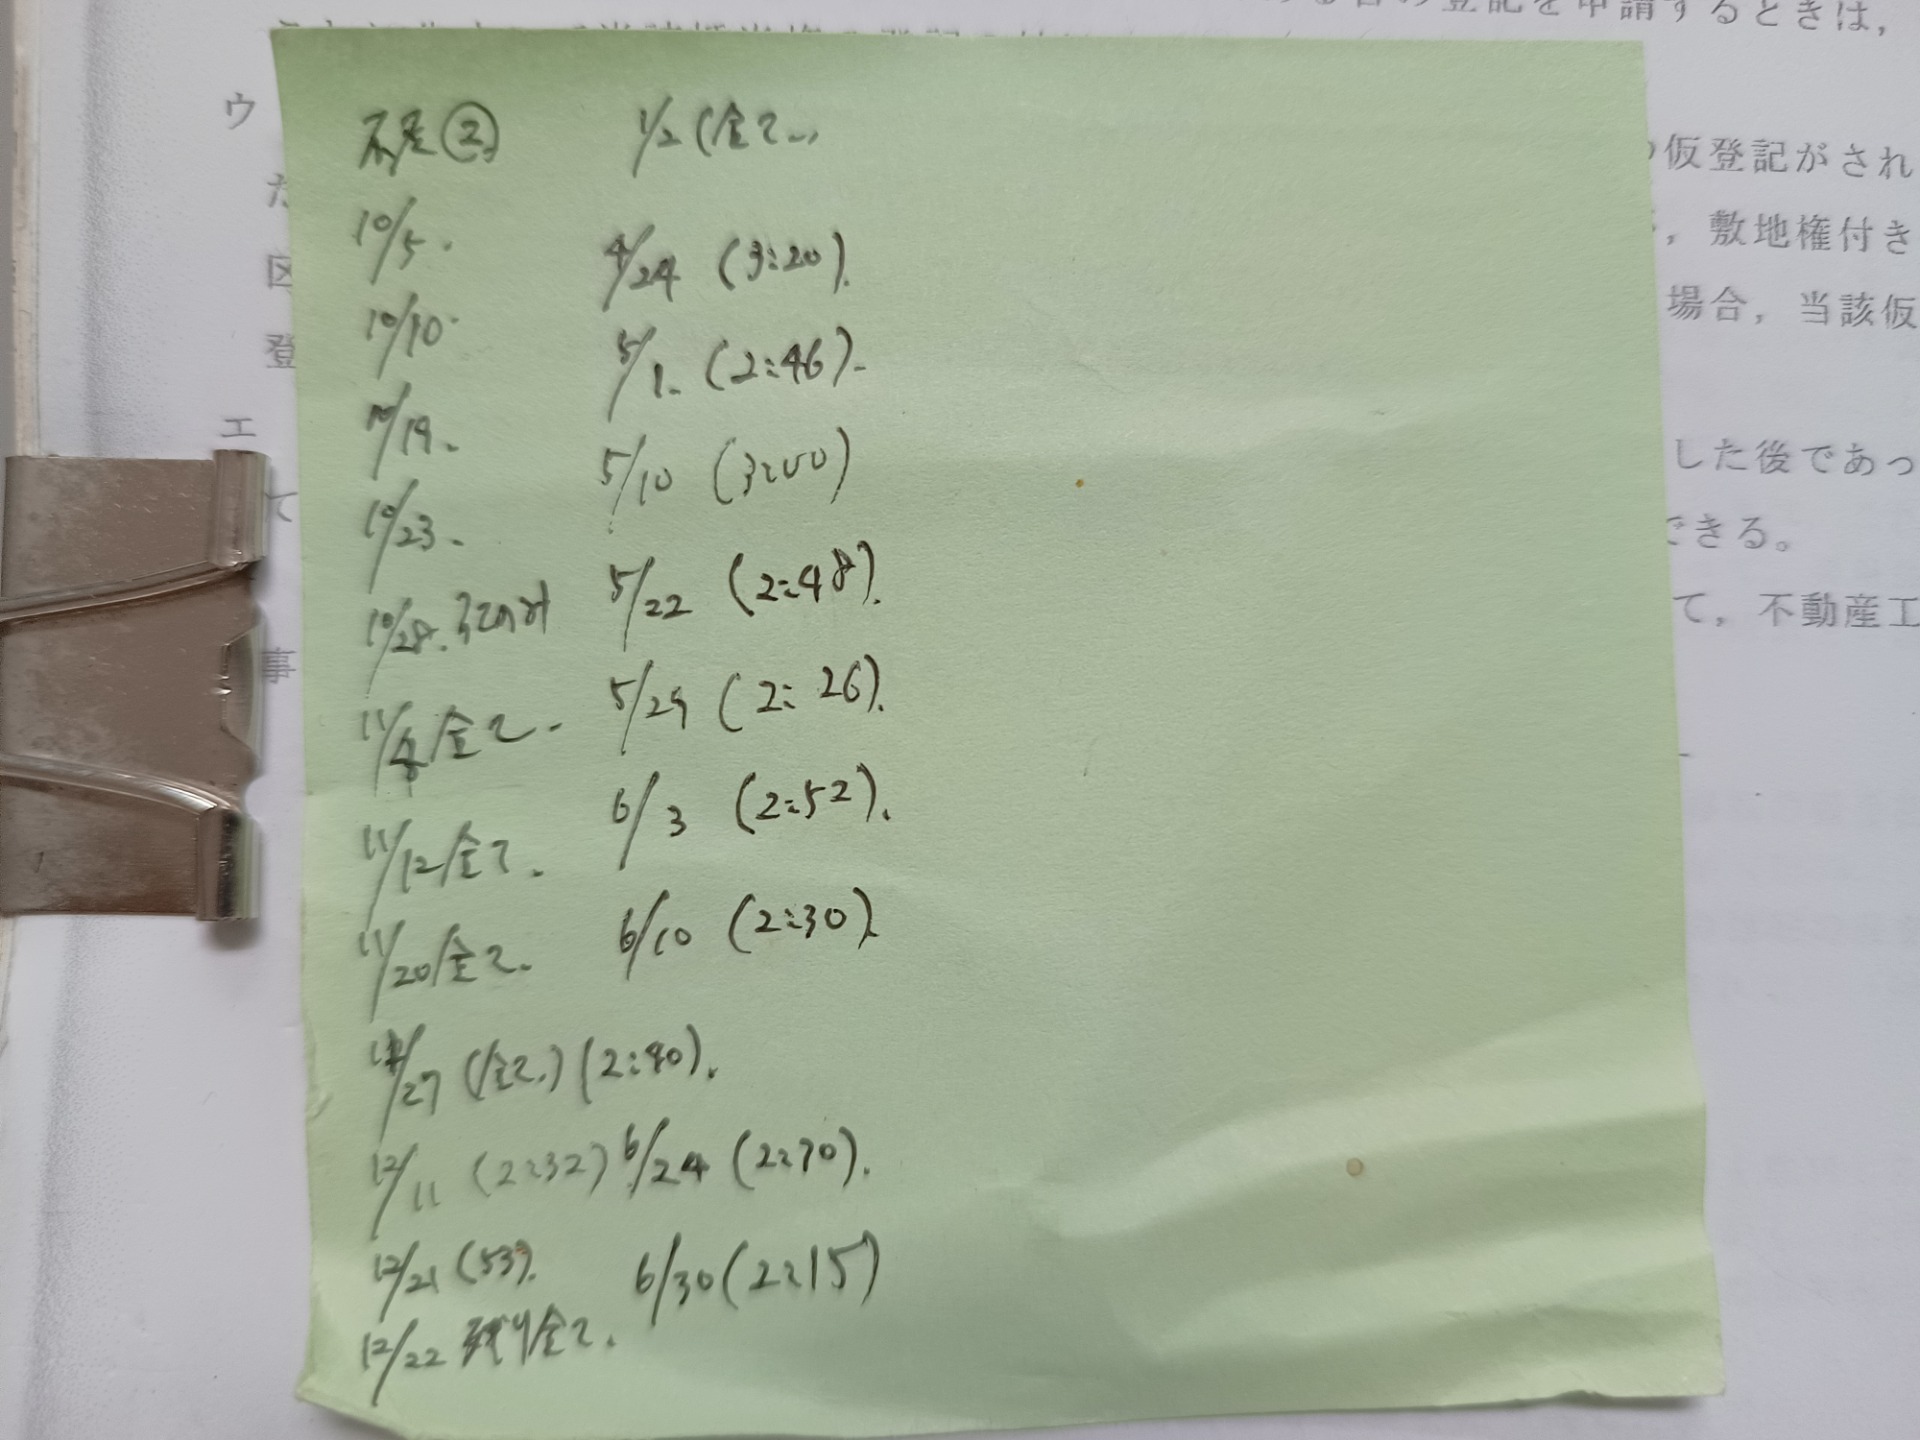 の登記を申請するときは,
ウ
の仮登記がされ
た
, 敷地権付き
区
場合, 当該仮
登
エ
した後であっ
て
できる。
て, 不動産工
事
②
10/5.
10/10.
10/19.
10/23.
10/28.
11/8 全て.
11/12 全て.
11/20 全て.
11/27 (全て.) (2:40).
12/11 (2:32)
12/21 (53).
12/22 残り全て.
1/2 (全て..
4/24 (3:20).
5/1. (2:46).
5/10 (3:00)
5/22 (2:48).
5/29 (2:26).
6/3 (2:52).
6/10 (2:30).
6/24 (2:70).
6/30 (2:15)